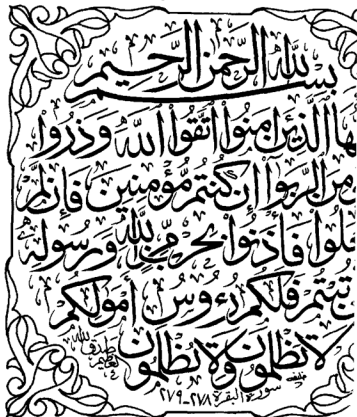 بسم الله الرحمن الرحيم
يها الذين امنوا اتقوا الله وذروا
من الربوا إن كنتم مؤمنين فإن لم
علوا فأذنوا بحرب من الله ورسوله
تبتم فلكم رءوس أمولكم
لا تظلمون ولا تظلمون
سورة البقرة ٢٧٨-٢٧٩